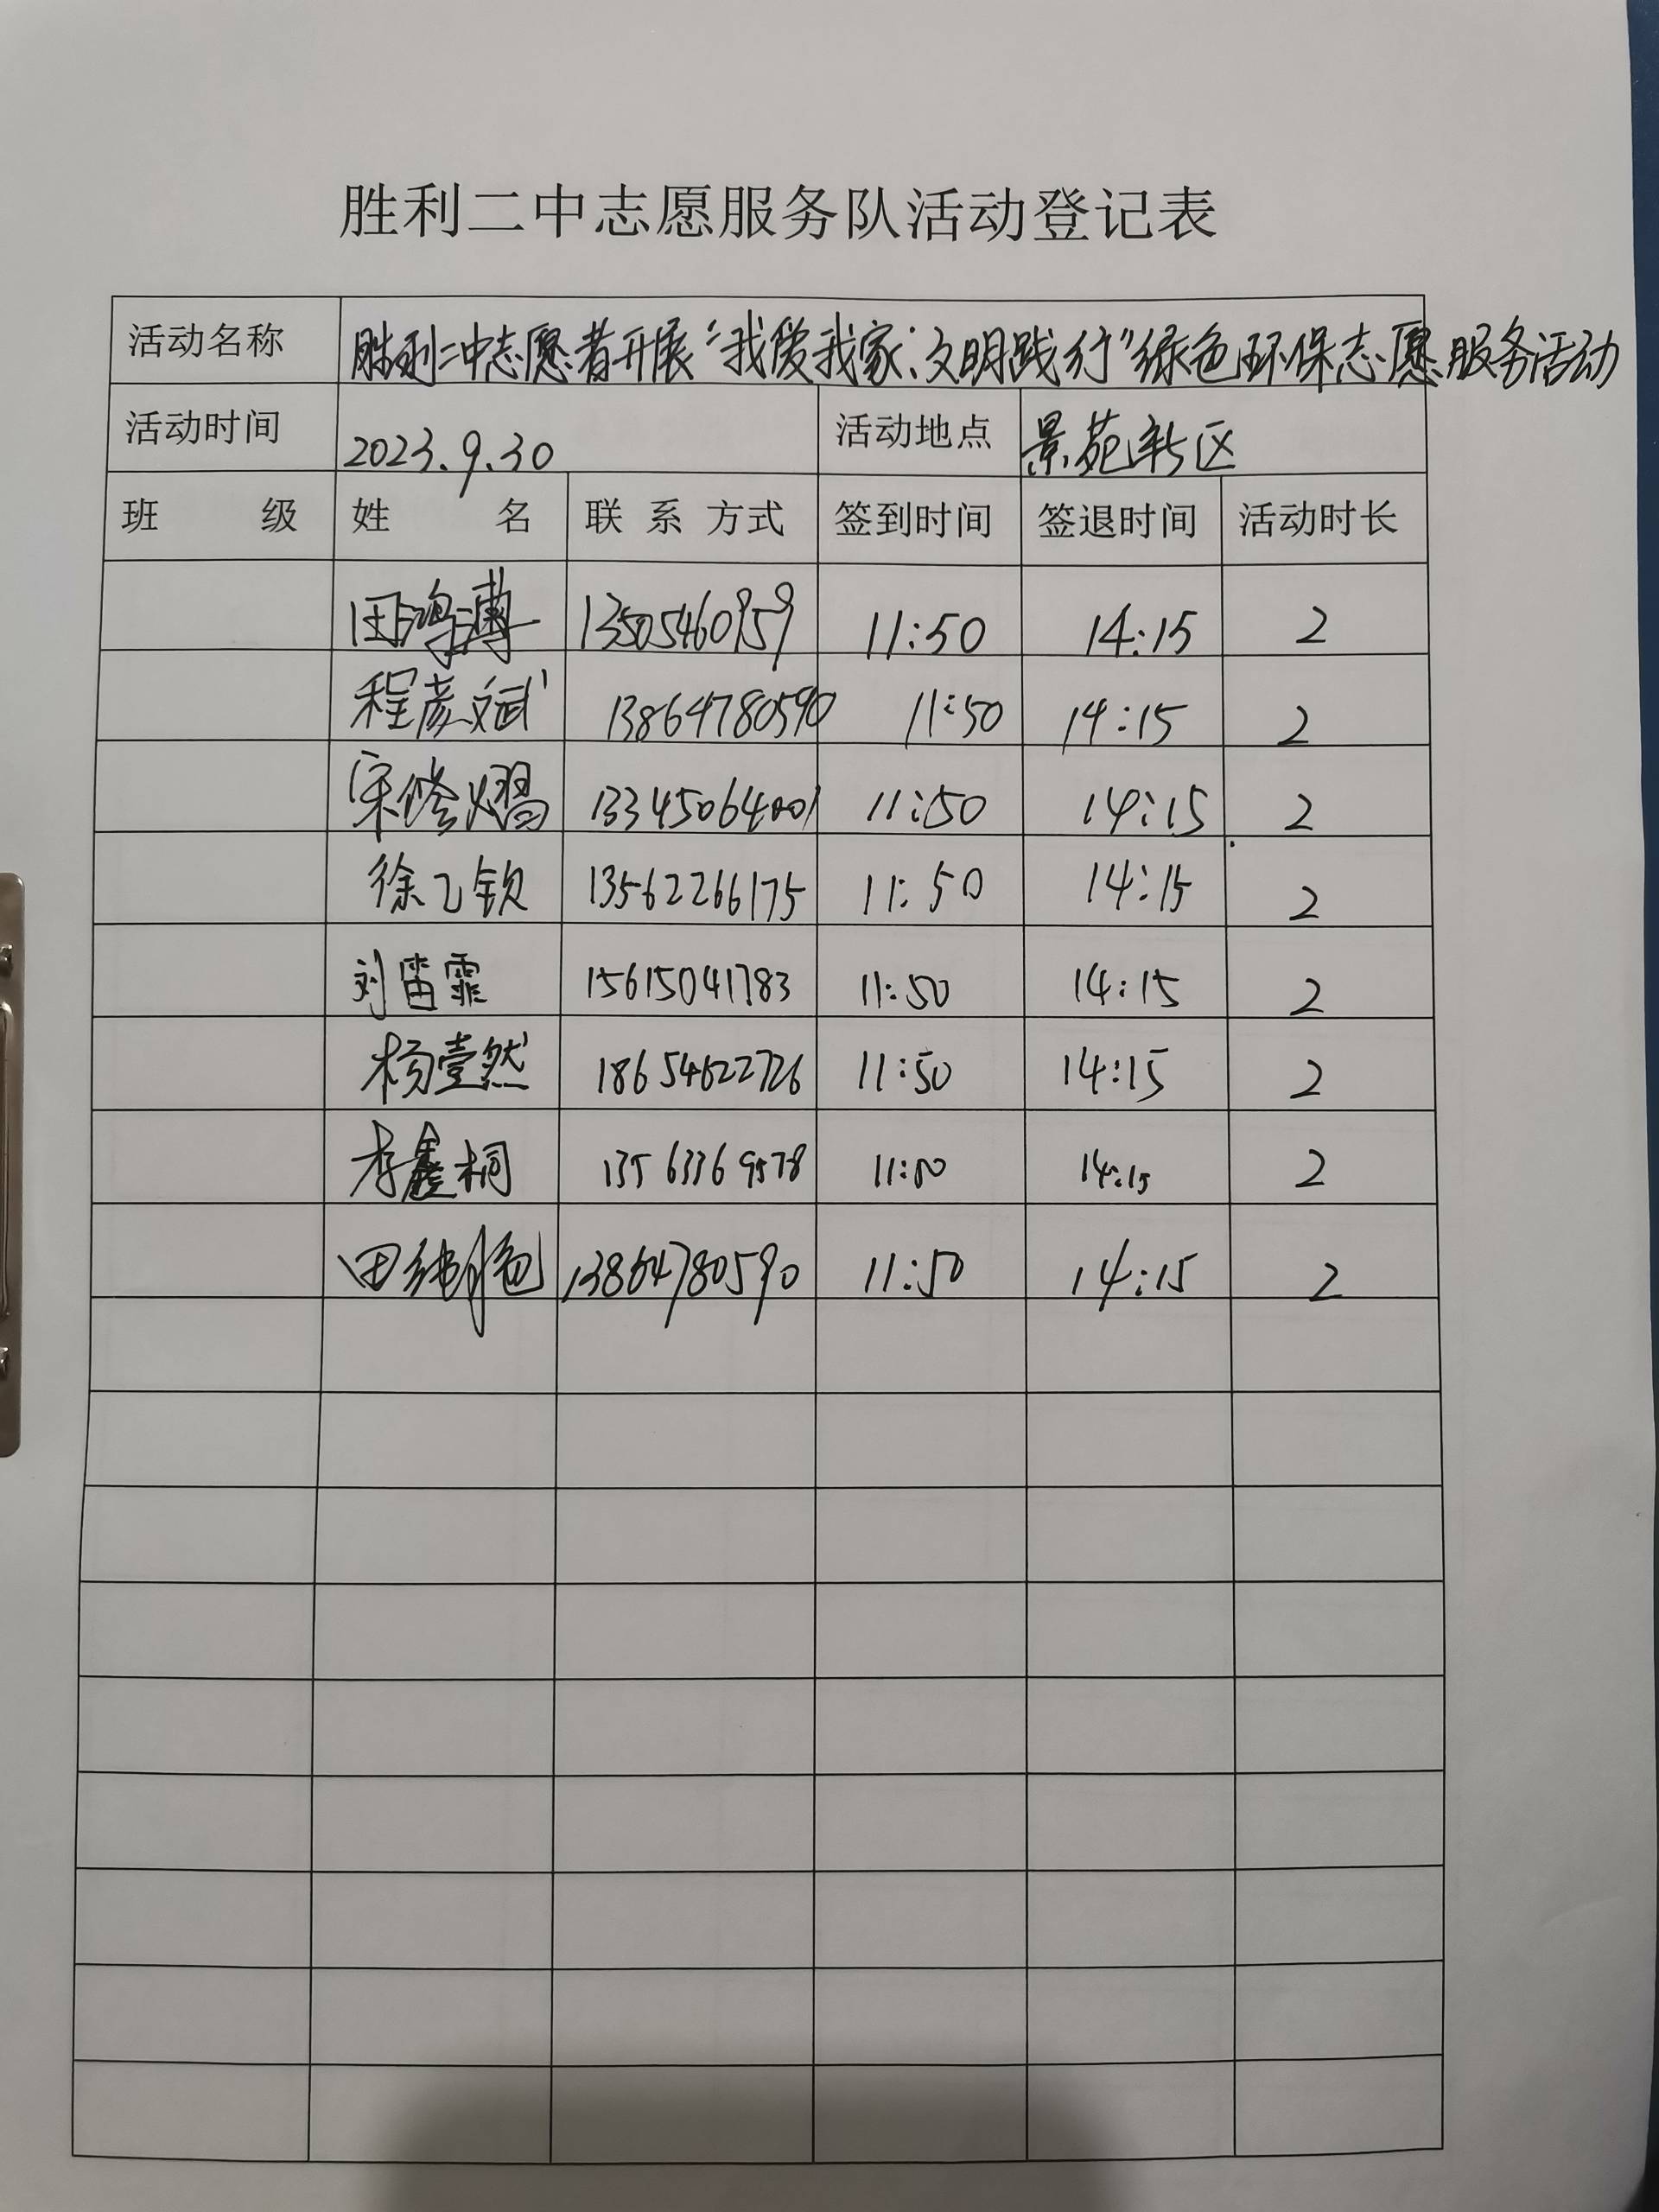 胜利二中志愿服务队活动登记表
活动名称 胜利二中志愿者开展“我爱我家:文明践行”绿色环保志愿服务活动
活动时间 2023.9.30 活动地点 景苑新区
班 级 姓 名 联 系 方式 签到时间 签退时间 活动时长
田鸿溥 13505460959 11:50 14:15 2
程彦斌 13864780590 11:50 14:15 2
宋修熠 13345064001 11:50 14:15 2
徐乙钦 13562266175 11:50 14:15 2
刘笛霏 15615041783 11:50 14:15 2
杨壹然 18654622726 11:50 14:15 2
李鑫桐 13563369578 11:50 14:15 2
田 13864780590 11:50 14:15 2